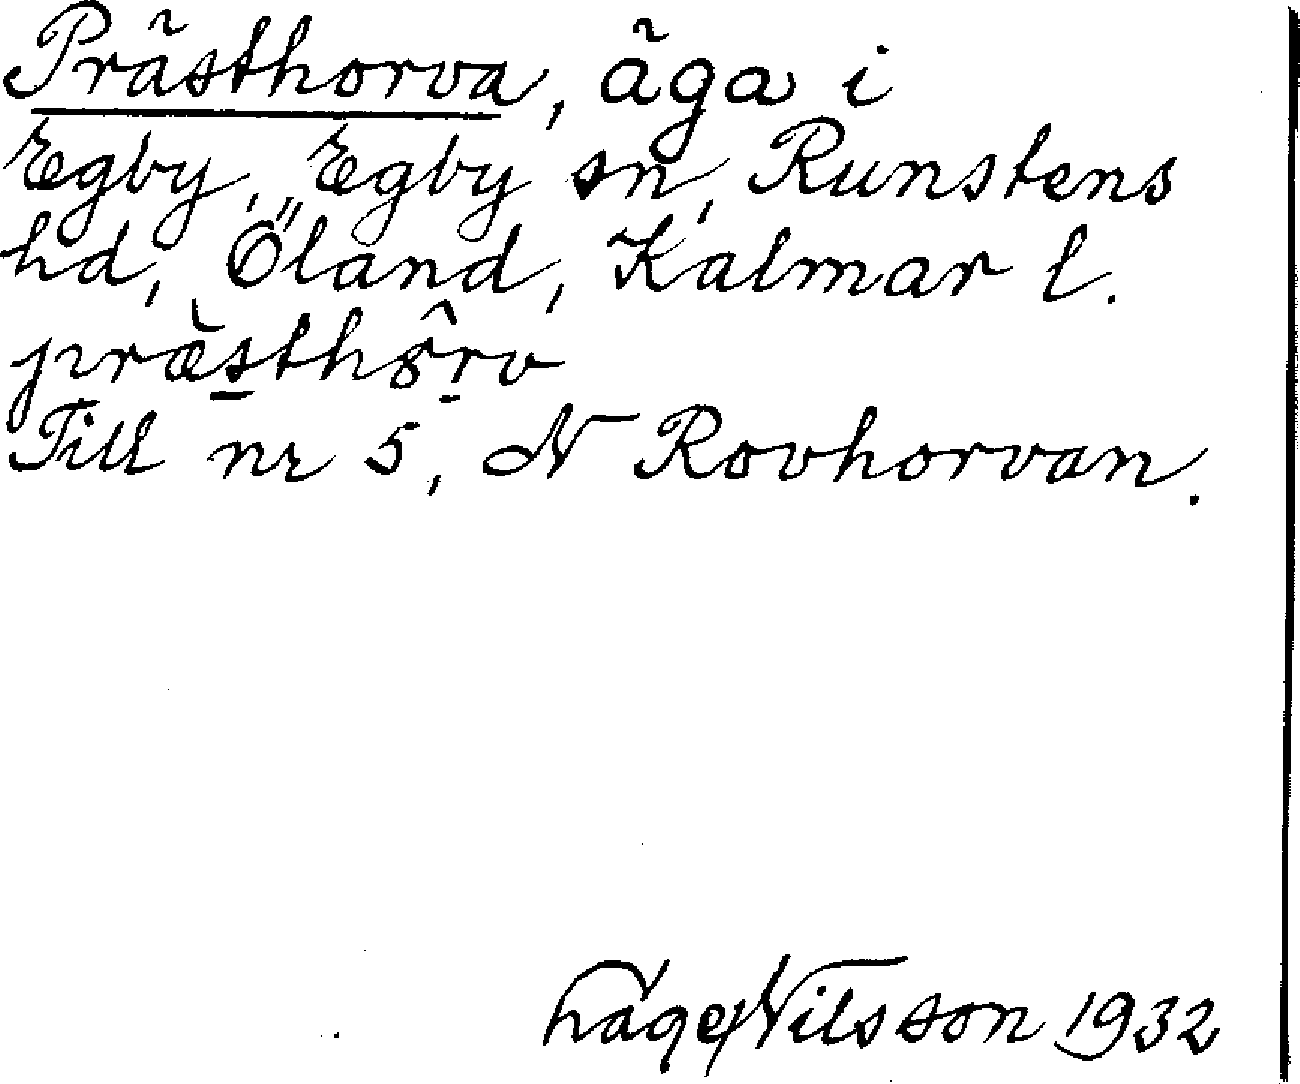 Prästhorva, äga i
Egby, Egby sn, Runstens
hd, Öland, Kalmar l.
præ̀sthôrv
Till nr 5, N Rovhorvan.
Nilsson 1932